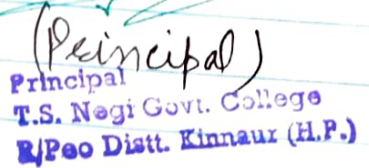 (Principal)
Principal
T.S. Negi Govt. College
R/Peo Distt. Kinnaur (H.P.)